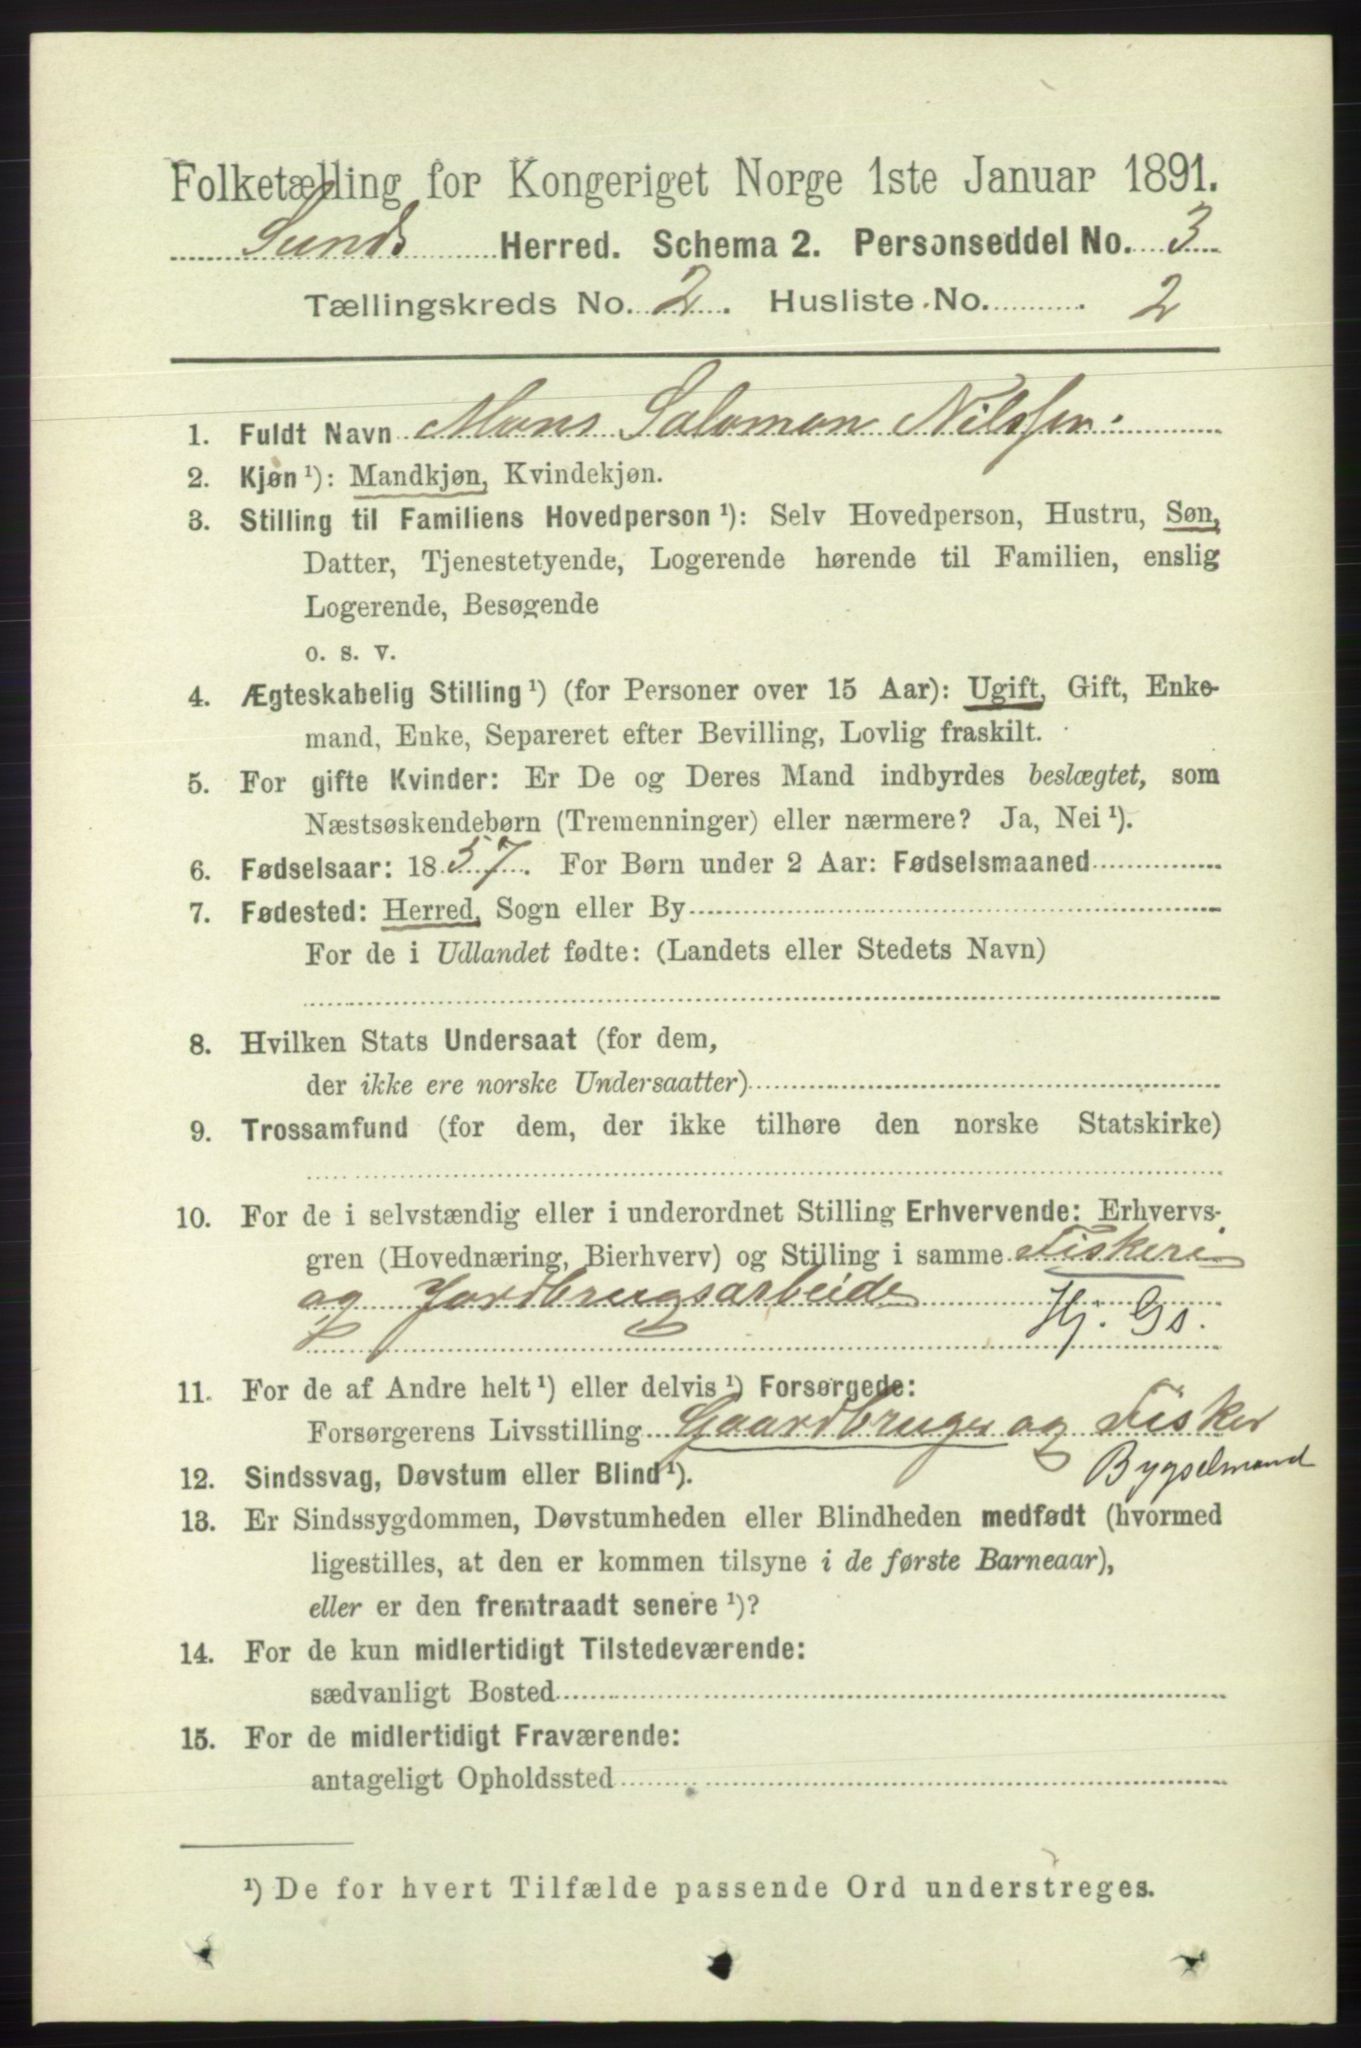 Folketælling for Kongeriget Norge 1ste Januar 1891.
Sunds Herred. Schema 2. Personseddel No. 3
Tællingskreds No. 2. Husliste No. 2
1. Fuldt Navn Mons Salomon Nilssen.
2. Kjøn ¹): Mandkjøn, Kvindekjøn.
3. Stilling til Familiens Hovedperson ¹): Selv Hovedperson, Hustru, Søn,
Datter, Tjenestetyende, Logerende hørende til Familien, enslig
Logerende, Besøgende
o. s. v.
4. Ægteskabelig Stilling ¹) (for Personer over 15 Aar): Ugift, Gift, Enke-
mand, Enke, Separeret efter Bevilling, Lovlig fraskilt.
5. For gifte Kvinder: Er De og Deres Mand indbyrdes beslægtet, som
Næstsøskendebørn (Tremenninger) eller nærmere? Ja, Nei ¹).
6. Fødselsaar: 1857. For Børn under 2 Aar: Fødselsmaaned
7. Fødested: Herred, Sogn eller By
For de i Udlandet fødte: (Landets eller Stedets Navn)
8. Hvilken Stats Undersaat (for dem,
der ikke ere norske Undersaatter)
9. Trossamfund (for dem, der ikke tilhøre den norske Statskirke)
10. For de i selvstændig eller i underordnet Stilling Erhvervende: Erhvervs-
gren (Hovednæring, Bierhverv) og Stilling i samme Fiskeri
og Jordbrugsarbeide
Hj. Gs.
11. For de af Andre helt ¹) eller delvis ¹) Forsørgede:
Forsørgerens Livsstilling Gaardbruger og Fisker
Bygselmand
12. Sindssvag, Døvstum eller Blind ¹).
13. Er Sindssygdommen, Døvstumheden eller Blindheden medfødt (hvormed
ligestilles, at den er kommen tilsyne i de første Barneaar),
eller er den fremtraadt senere ¹)?
14. For de kun midlertidigt Tilstedeværende:
sædvanligt Bosted
15. For de midlertidigt Fraværende:
antageligt Opholdssted
¹) De for hvert Tilfælde passende Ord understreges.